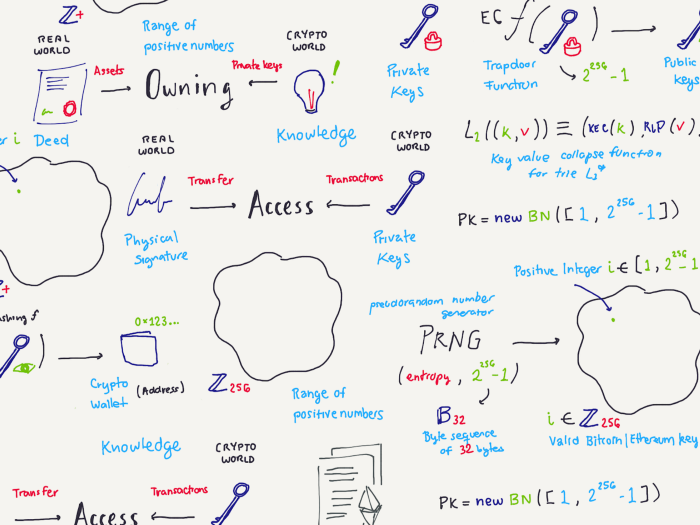 ℤ+
Range of
positive numbers
REAL
WORLD
Assets
Owning
Private keys
CRYPTO
WORLD
!
Knowledge
i Deed
Private
Keys
EC f( )
Trapdoor
Function
2^256-1
Public
keys
L2((k,v)) ≡ (KEC(k), RLP(v)
Key value collapse function
for trie L3*
REAL
WORLD
Transfer
Access
Transactions
CRYPTO
WORLD
Physical
Signature
Private
Keys
PK = new BN([1, 2^256-1])
Positive Integer i ∈ [1, 2^256-1
+
f
)
0x123...
Crypto
Wallet
(Address)
ℤ256
Range of
positive numbers
pseudorandom number
generator
PRNG
(entropy, 2^256-1)
B32
Byte sequence
of 32 bytes
i ∈ ℤ256
Valid Bitcoin|Ethereum key
Knowledge
CRYPTO
WORLD
Transfer
Access
Transactions
PK = new BN([1, 2^256-1])